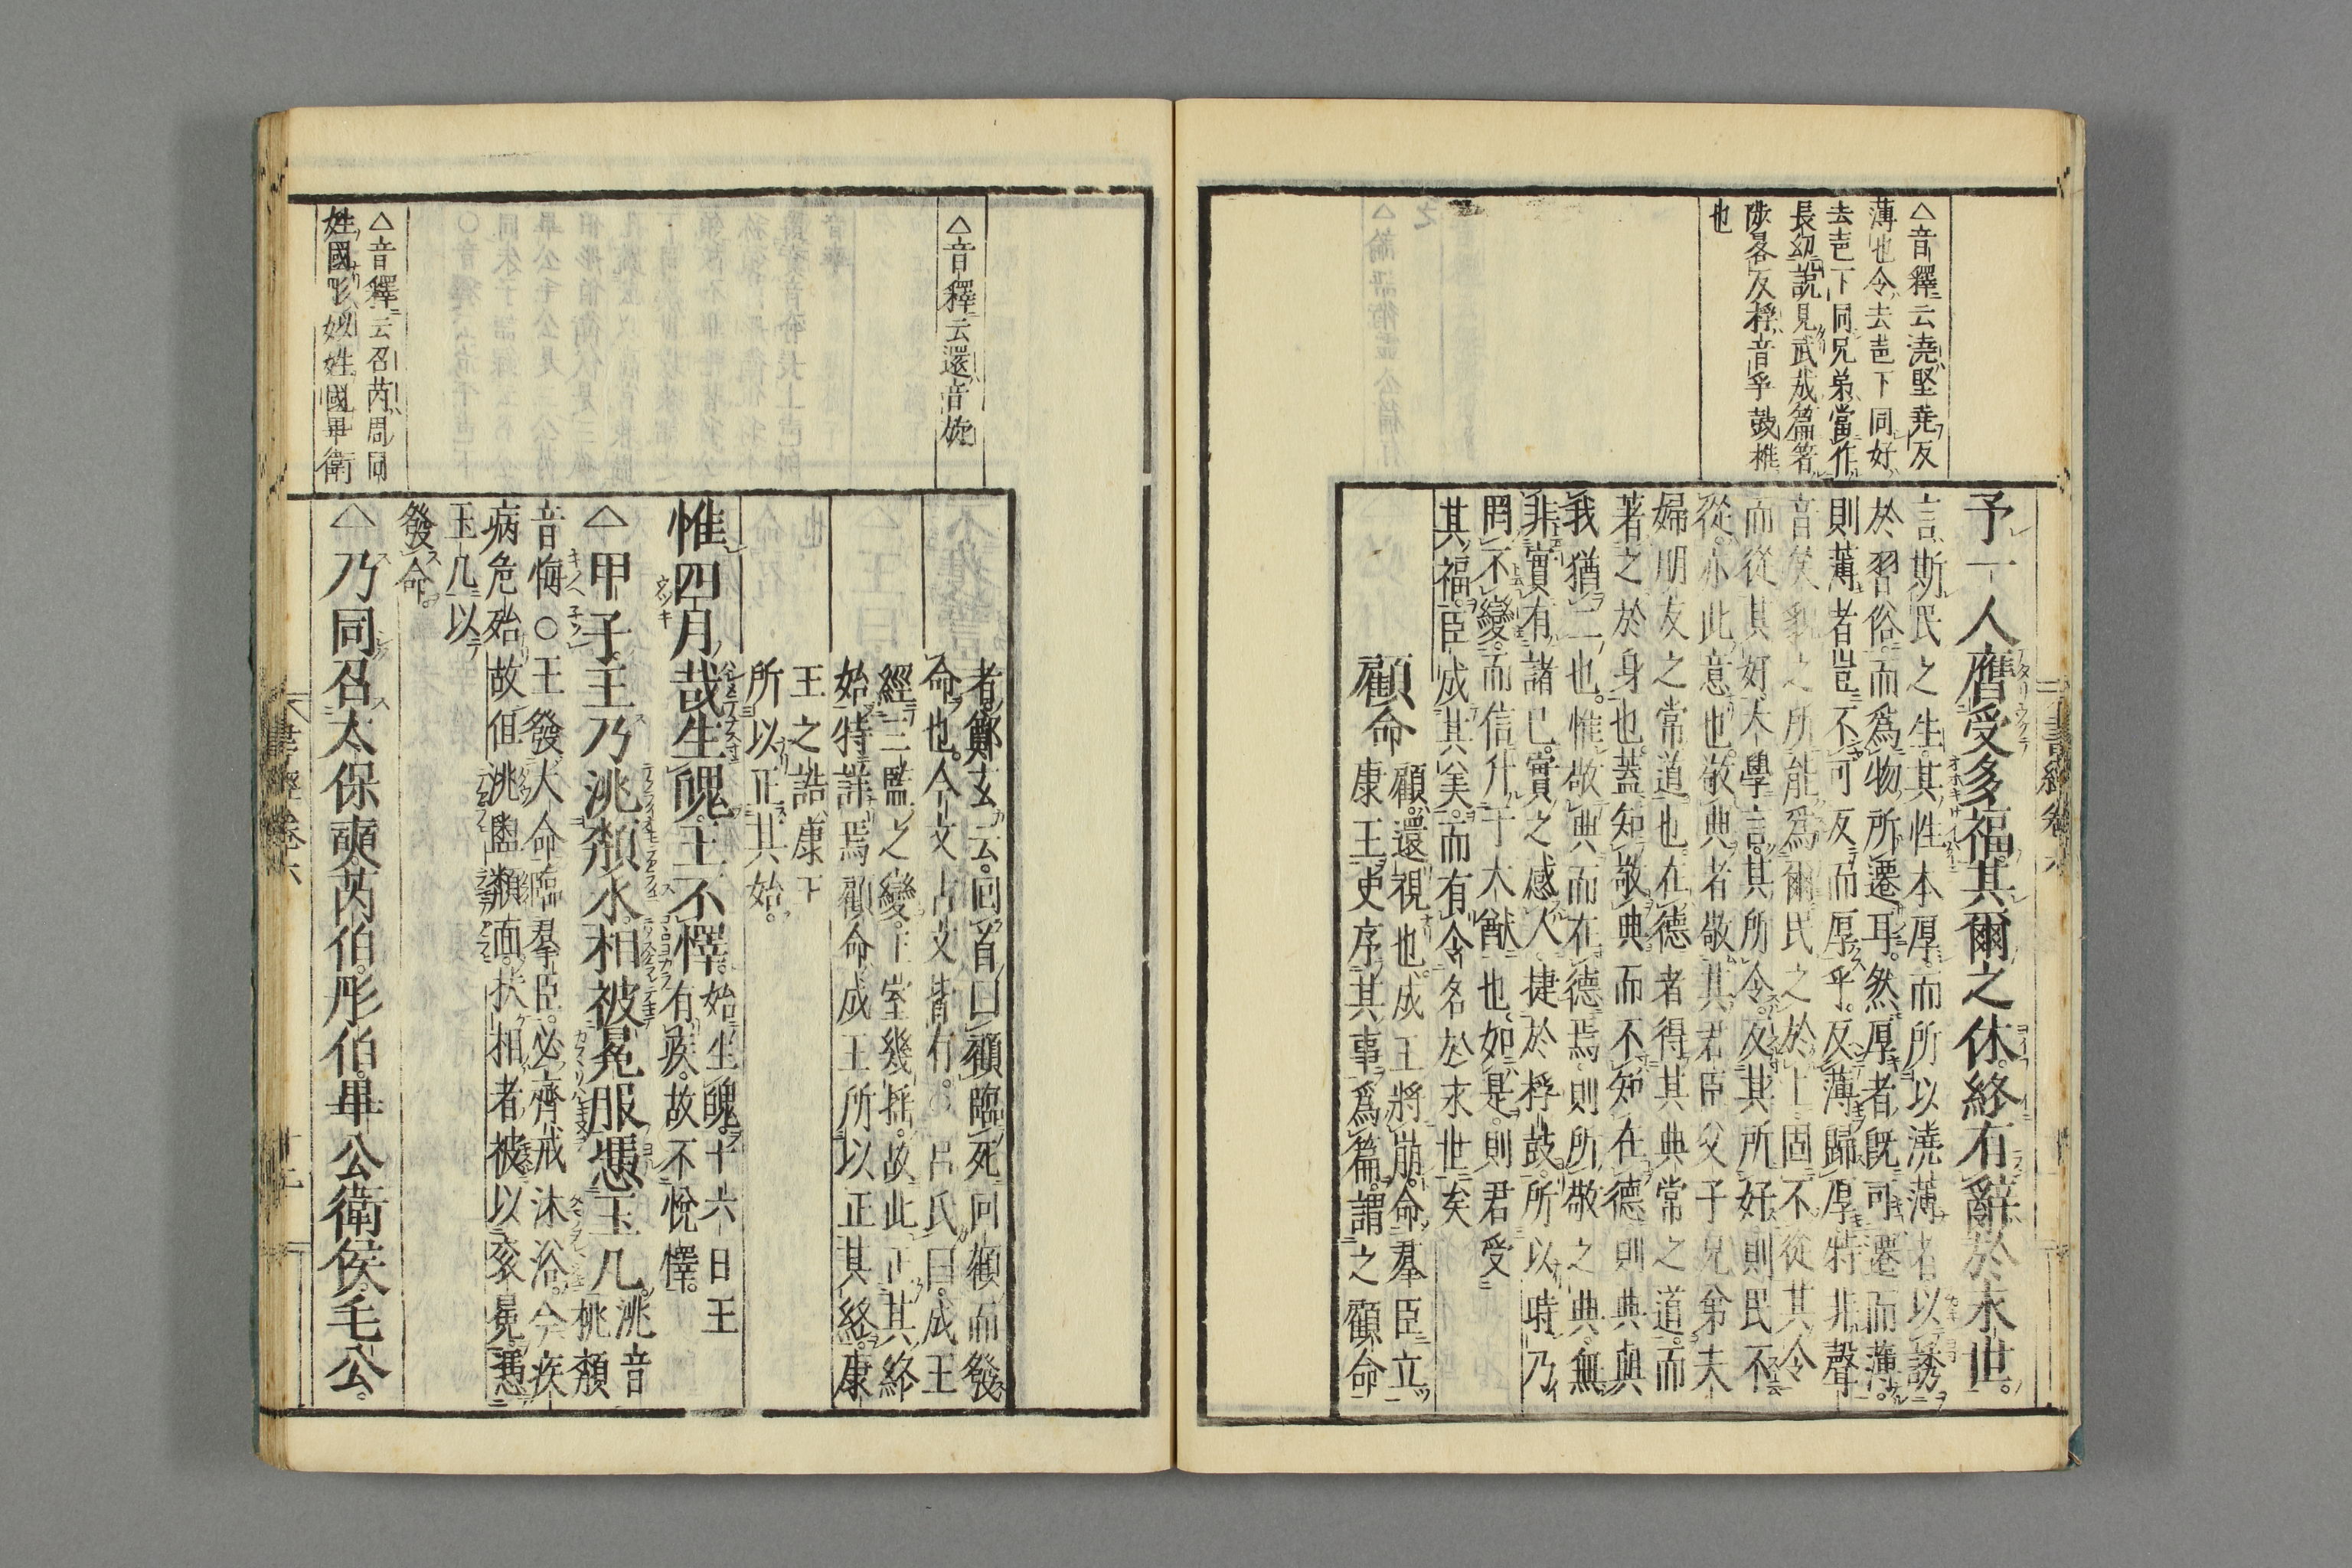 △音釋云澆堅堯反
薄也令去声下同好
去声下同兄弟當作
長幼說見武成篇箸
陟畧反桴音孚鼓椎
也
予一人膺受多福其爾之休終有辭於永世
言斯民之生其性本厚而所以澆薄者以誘
於習俗而爲物所遷耳然厚者旣可遷而薄
則薄者豈不可反而厚乎反薄歸厚特非聲
音笑貌之所能爲爾民之於上固不從其令
而從其好大學言其所令反其所好則民不
從亦此意也敬典者敬其君臣父子兄弟夫
婦朋友之常道也在德者得其典常之道而
著之於身也蓋知敬典而不知在德則典與
我猶二也惟敬典而在德焉則所敬之典無
非實有諸已實之感人捷於桴鼓所以時乃
罔不變而信升于大猷也如是則君受
其福臣成其美而有令名於永世矣
顧命
顧還視也成王將崩命羣臣立
康王史序其事爲篇謂之顧命
△音釋云還音旋
者鄭玄云回首曰顧臨死回顧而發
命也今文古文皆有○呂氏曰成王
經三監之變王室幾揺故此正其終
始特詳焉顧命成王所以正其終康
王之誥康王
所以正其始
惟四月哉生魄王不懌
始生魄十六日王
有疾故不悅懌
△甲子王乃洮頮水相被冕服憑玉几
洮音
桃頮
音悔○王發大命臨羣臣必齊戒沐浴今疾
病危殆故但洮盥頮面扶相者被以衮冕憑
玉几以
發命
△音釋云召芮周同
姓國彤姒姓國畢衛
△乃同召太保奭芮伯彤伯畢公衛侯毛公
書經卷六